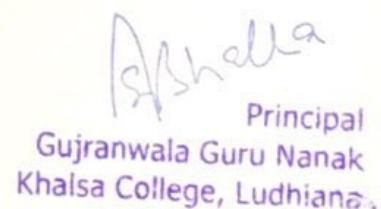 SBhalla
Principal
Gujranwala Guru Nanak
Khalsa College, Ludhiana